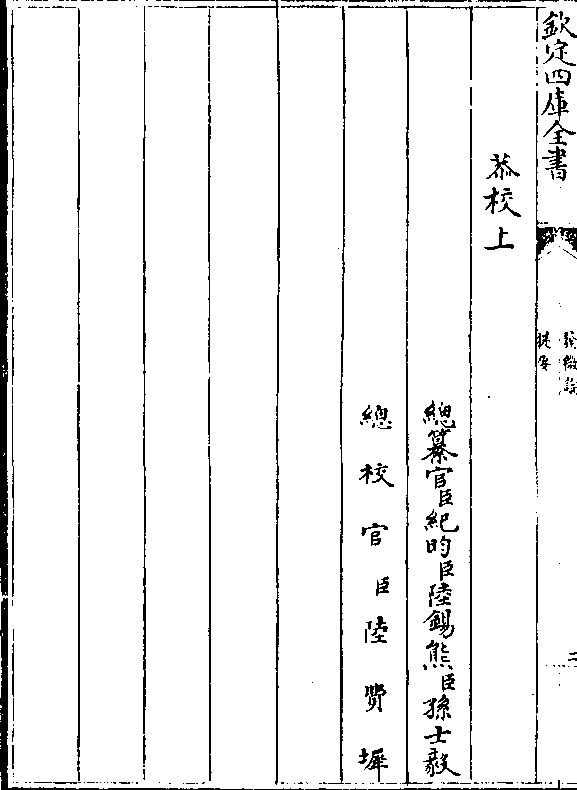 欽定四庫全書
發微論
提要
二
恭校上
總纂官臣紀昀臣陸錫熊臣孫士毅
總校官臣陸費墀